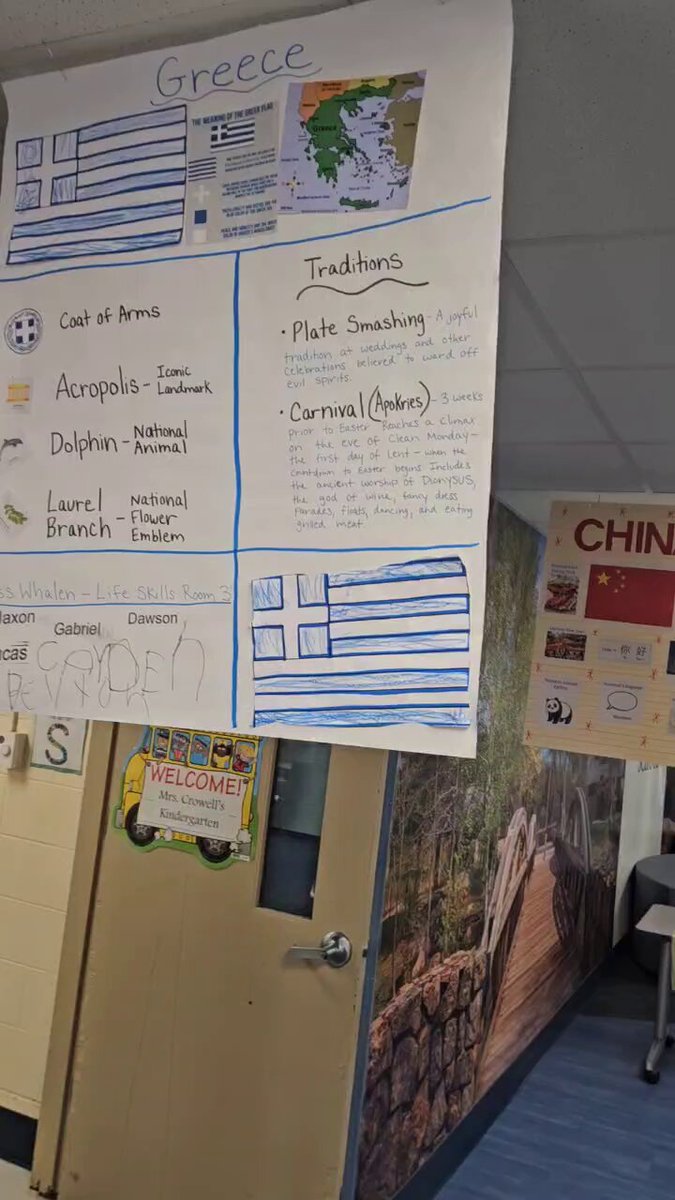 Greece
THE MEANING OF THE GREEK FLAG
Greece
Coat of Arms
Acropolis - Iconic
Landmark
Dolphin - National
Animal
Laurel
Branch - National
Flower
Emblem
Traditions
• Plate Smashing - A joyful
tradition at weddings and other
celebrations believed to ward off
evil spirits.
• Carnival (Apokries) - 3 weeks
prior to Easter Reaches a climax
on the eve of Clean Monday -
the first day of Lent - when the
countdown to Easter begins Includes
the ancient worship of Dionysus,
the god of wine, fancy dress
parades, floats, dancing, and eating
grilled meat.
ss Whalen - Life Skills Room 3
axon
Gabriel
Dawson
cas
CHIN
你好
S
WELCOME!
Mrs. Crowell's
Kindergarten